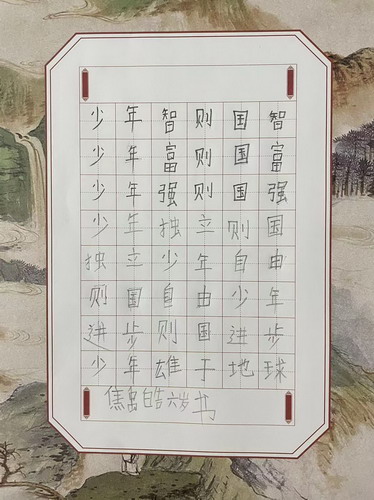 少年智则国智
少年富则国富
少年强则国强
少年独立则国
独立少年自由
则国自由少年
进步则国进步
少年雄于地球
焦皓六岁书